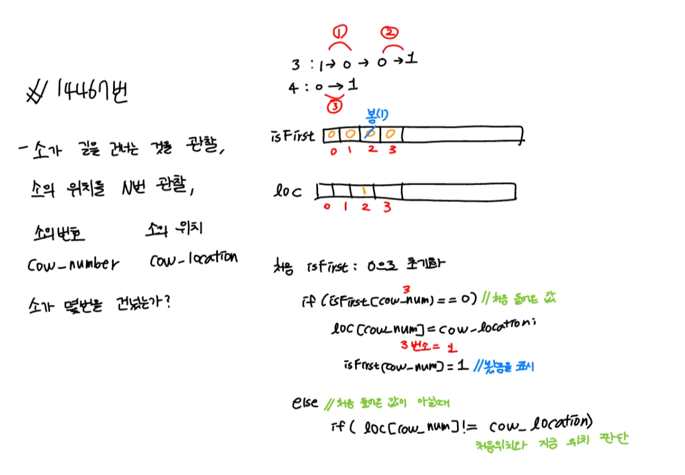 ※ 14467번
- 소가 길을 건너는 것을 관찰,
소의 위치를 N번 관찰,
소의번호 소의 위치
cow_number cow_location
소가 몇번을 건넜는가?
① ②
3 : 1→ 0 → 0 →1
4 : 0 → 1
③
봄(1)
isFirst 0 0 0 0
0 1 2 3
loc 1
0 1 2 3
처음 isFirst : 0으로 초기화
3
if (isFirst[cow_num] == 0) //처음 들어온 값
loc[cow_num] = cow_location;
3번소 = 1
isFirst[cow_num] = 1 //봤음을 표시
else //처음 들어온 값이 아닐때
if ( loc[cow_num] != cow_location)
처음위치와 지금 위치 판단